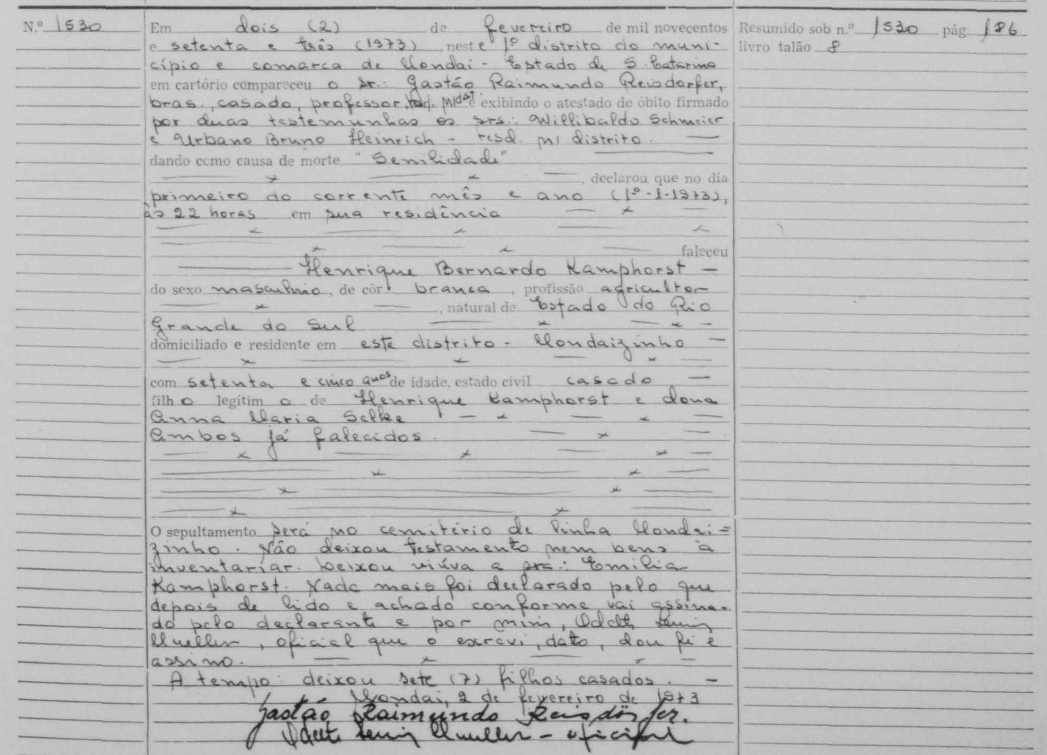 N.º 1530
Em dois (2) de fevereiro de mil novecentos
e setenta e três (1973), neste 1º distrito do muni-
cípio e comarca de Mondaí - Estado de S. Catarina
em cartório compareceu o sr. Gastão Raimundo Reisdorfer,
bras., casado, professor, e exibindo o atestado de óbito firmado
por duas testemunhas os srs.: Willibaldo Schmeier
e Urbano Bruno Heinrich - resd. n/ distrito.
dando como causa de morte "Senilidade"
, declarou que no dia
primeiro do corrente mês e ano (1º-1-1973),
às 22 horas em sua residência
faleceu
Henrique Bernardo Kamphorst -
do sexo masculino, de côr branca, profissão agricultor
, natural de Estado do Rio
Grande do Sul
domiciliado e residente em este distrito - Mondaizinho
com setenta e cinco anos de idade, estado civil casado
filho legítimo de Henrique Kamphorst e dona
Anna Maria Selke
Ambos já falecidos.
O sepultamento será no cemitério de linha Mondai=
zinho. Não deixou testamento nem bens à
inventariar. Deixou viúva a sra.: Emilia
Kamphorst. Nada mais foi declarado pelo que
depois de lido e achado conforme vai assina-
do pelo declarante e por mim, Odete
Mueller, oficial que o escrevi, dato, dou fé e
assino.
A tempo: deixou sete (7) filhos casados. -
Mondai, 2 de fevereiro de 1973
Gastão Raimundo Reisdörfer.
Odete Mueller - oficial
Resumido sob n.º 1530 pág. 186
livro talão 8